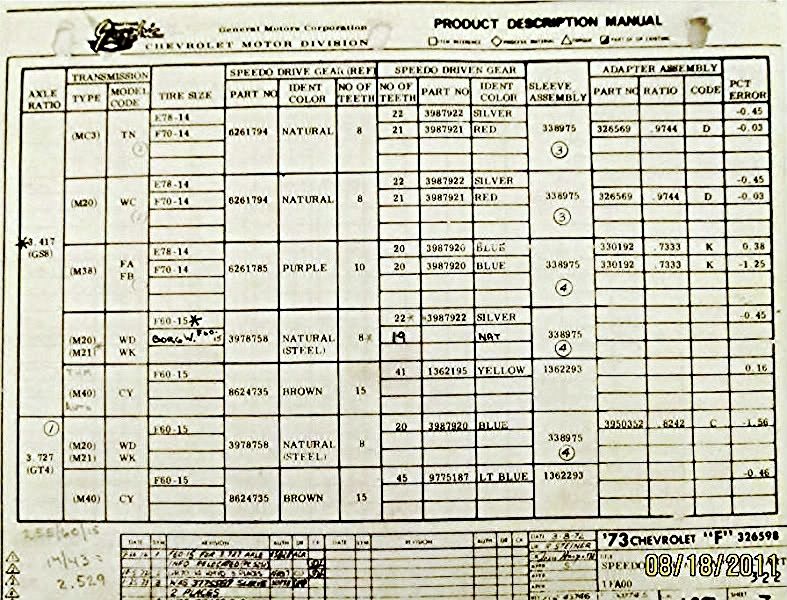 General Motors Corporation
CHEVROLET MOTOR DIVISION
PRODUCT DESCRIPTION MANUAL
AXLE RATIO TRANSMISSION TYPE MODEL CODE TIRE SIZE SPEEDO DRIVE GEAR (REF) PART NO IDENT COLOR NO OF TEETH SPEEDO DRIVEN GEAR NO OF TEETH PART NO IDENT COLOR SLEEVE ASSEMBLY ADAPTER ASSEMBLY PART NO RATIO CODE PCT ERROR
E78-14 22 3987922 SILVER -0.45
(MC3) TN F70-14 6261794 NATURAL 8 21 3987921 RED 338975 326569 .9744 D -0.03
3
E78-14 22 3987922 SILVER -0.45
(M20) WC F70-14 6261794 NATURAL 8 21 3987921 RED 338975 326569 .9744 D -0.03
3
3.417
(GS8)
E78-14 20 3987920 BLUE 330192 .7333 K 0.38
(M38) FA FB F70-14 6261785 PURPLE 10 20 3987920 BLUE 338975 330192 .7333 K -1.25
4
F60-15* 22* 3987922 SILVER -0.45
(M20) WD BORG W. F60-15 3978758 NATURAL 8* 19 NAT 338975
(M21) WK (STEEL) 4
F60-15 41 1362195 YELLOW 1362293 0.16
(M40) CY 8624735 BROWN 15
1
F60-15 20 3987920 BLUE 3950352 .8242 C -1.56
(M20) WD 3978758 NATURAL 8 338975
3.727 (M21) WK (STEEL) 4
(GT4)
F60-15 45 9775187 LT BLUE 1362293 -0.46
(M40) CY 8624735 BROWN 15
255/60/15
14/43 =
2.529
DATE SYM REVISION AUTH DR CK DATE SYM REVISION AUTH DR CK
2 PLACES
DATE 3-8-72
STEINER
'73 CHEVROLET "F" 326598
SPEEDO
1FA00
08/18/2011